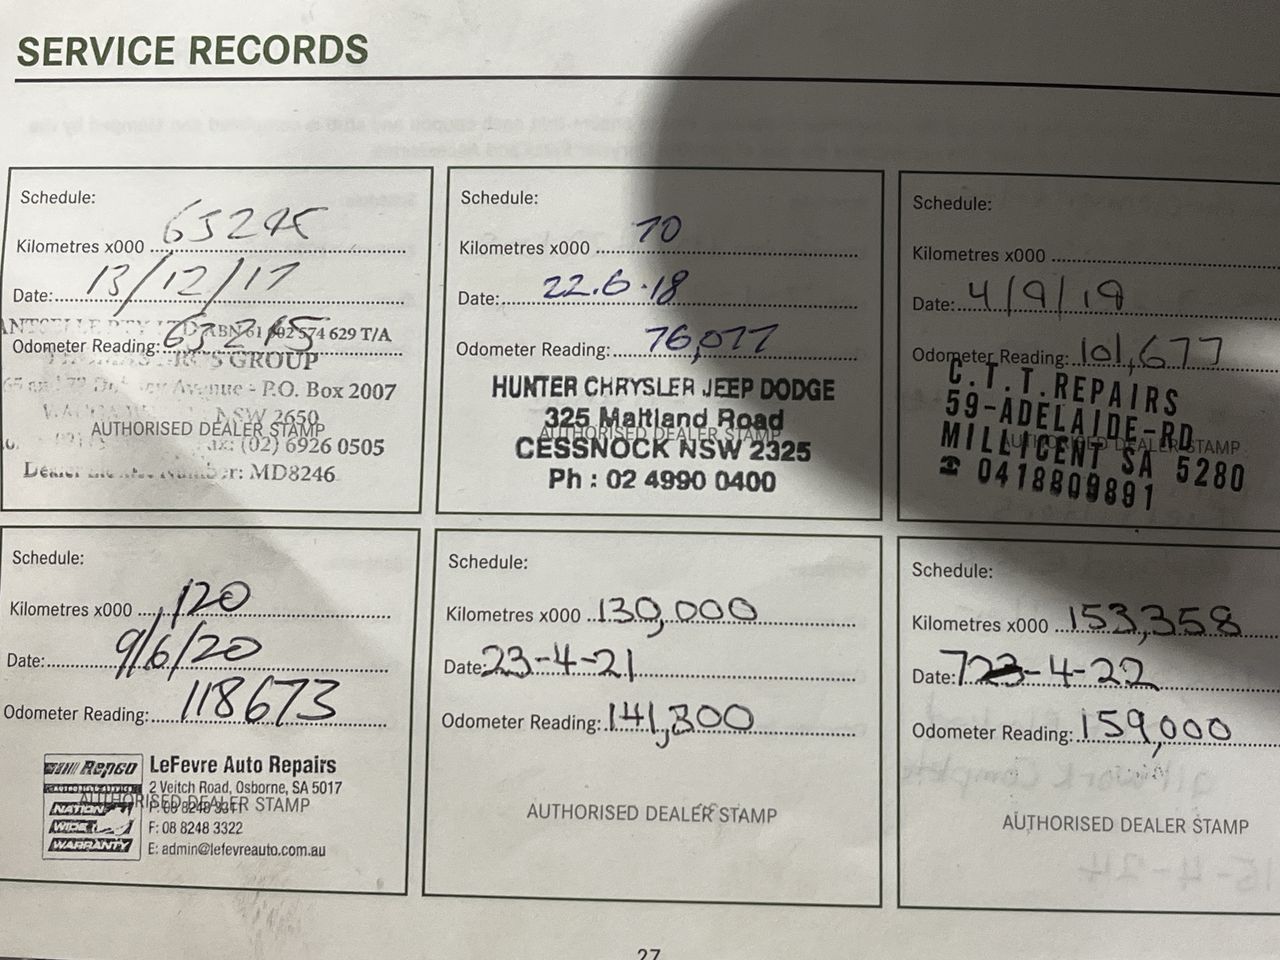 SERVICE RECORDS
Schedule:
Kilometres x000 63245
Date: 13/12/17
ABN 61 002 574 629 T/A
Odometer Reading: 63245
GROUP
Avenue - P.O. Box 2007
NSW 2650
AUTHORISED DEALER STAMP
Fax: (02) 6926 0505
Dealer Number: MD8246
Schedule:
Kilometres x000 70
Date: 22.6.18
Odometer Reading: 76,077
HUNTER CHRYSLER JEEP DODGE
325 Maitland Road
AUTHORISED DEALER STAMP
CESSNOCK NSW 2325
Ph : 02 4990 0400
Schedule:
Kilometres x000
Date: 4/9/19
Odometer Reading: 101,677
C.T.T.REPAIRS
59-ADELAIDE-RD
AUTHORISED DEALER STAMP
MILLICENT SA 5280
☎ 0418809891
Schedule:
Kilometres x000 120
Date: 9/6/20
Odometer Reading: 118673
Repco
LeFevre Auto Repairs
2 Veitch Road, Osborne, SA 5017
AUTHORISED DEALER STAMP
NATION
WIDE
F: 08 8248 3322
WARRANTY
E: admin@lefevreauto.com.au
Schedule:
Kilometres x000 130,000
Date: 23-4-21
Odometer Reading: 141,300
AUTHORISED DEALER STAMP
Schedule:
Kilometres x000 153,358
Date: 7-4-22
Odometer Reading: 159,000
AUTHORISED DEALER STAMP
27